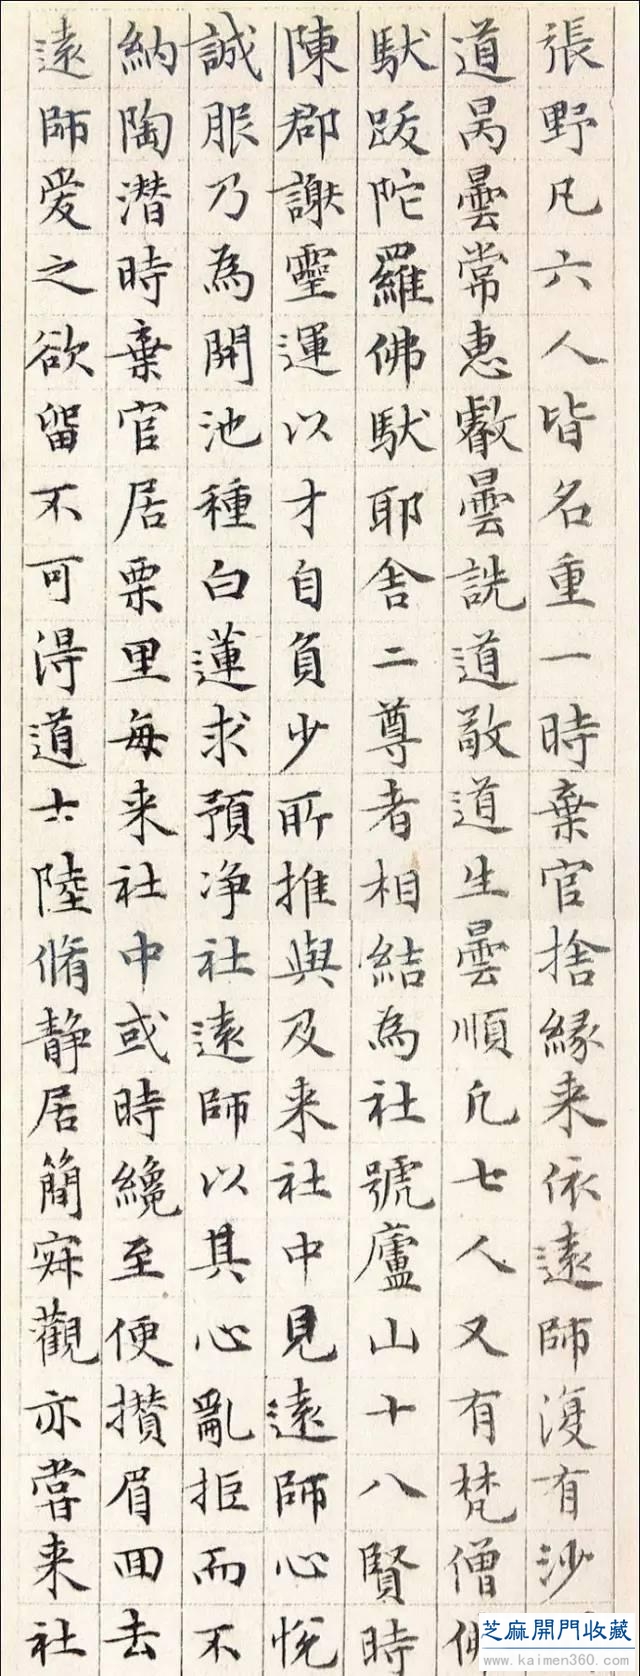 張野凡六人皆名重一時棄官捨緣来依遠師復有沙
道昺曇常惠叡曇詵道敬道生曇順凡七人又有梵僧佛
馱跋陀羅佛馱耶舍二尊者相結為社號廬山十八賢時
陳郡謝靈運以才自負少所推與及来社中見遠師心悅
誠服乃為開池種白蓮求預净社遠師以其心亂拒而不
納陶潛時棄官居栗里每来社中或時纔至便攢眉回去
遠師愛之欲留不可得道士陸脩靜居簡寂觀亦嘗来社
芝麻開門收藏
www.kaimen360.com